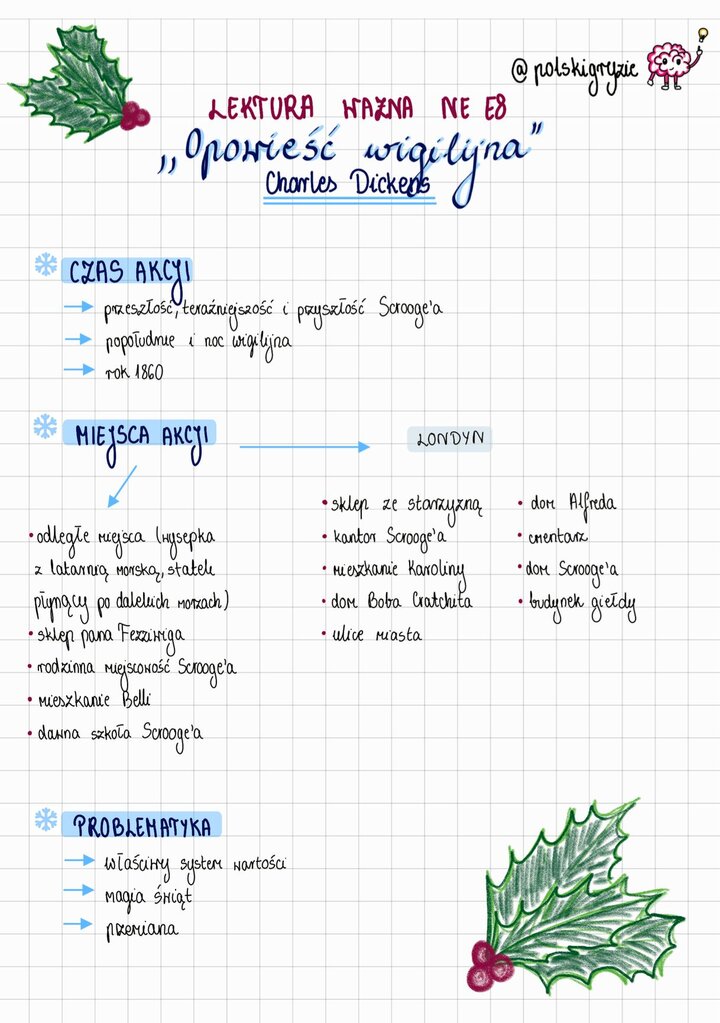 @polskigryzie
LEKTURA WAŻNA NE E8
„Opowieść wigilijna"
Charles Dickens
CZAS AKCJI
→ przeszłość, teraźniejszość i przyszłość Scrooge'a
→ popołudnie i noc wigilijna
→ rok 1860
MIEJSCA AKCJI → LONDYN
• odległe miejsca (wysepka
z latarnią morską, statek
płynący po dalekich morzach)
• sklep pana Fezziwiga
• rodzinna miejscowość Scrooge'a
• mieszkanie Belli
• dawna szkoła Scrooge'a
• sklep ze starzyzną
• kantor Scrooge'a
• mieszkanie Karoliny
• dom Boba Cratchita
• ulice miasta
• dom Alfreda
• cmentarz
• dom Scrooge'a
• budynek giełdy
PROBLEMATYKA
→ właściwy system wartości
→ magia świąt
→ przemiana